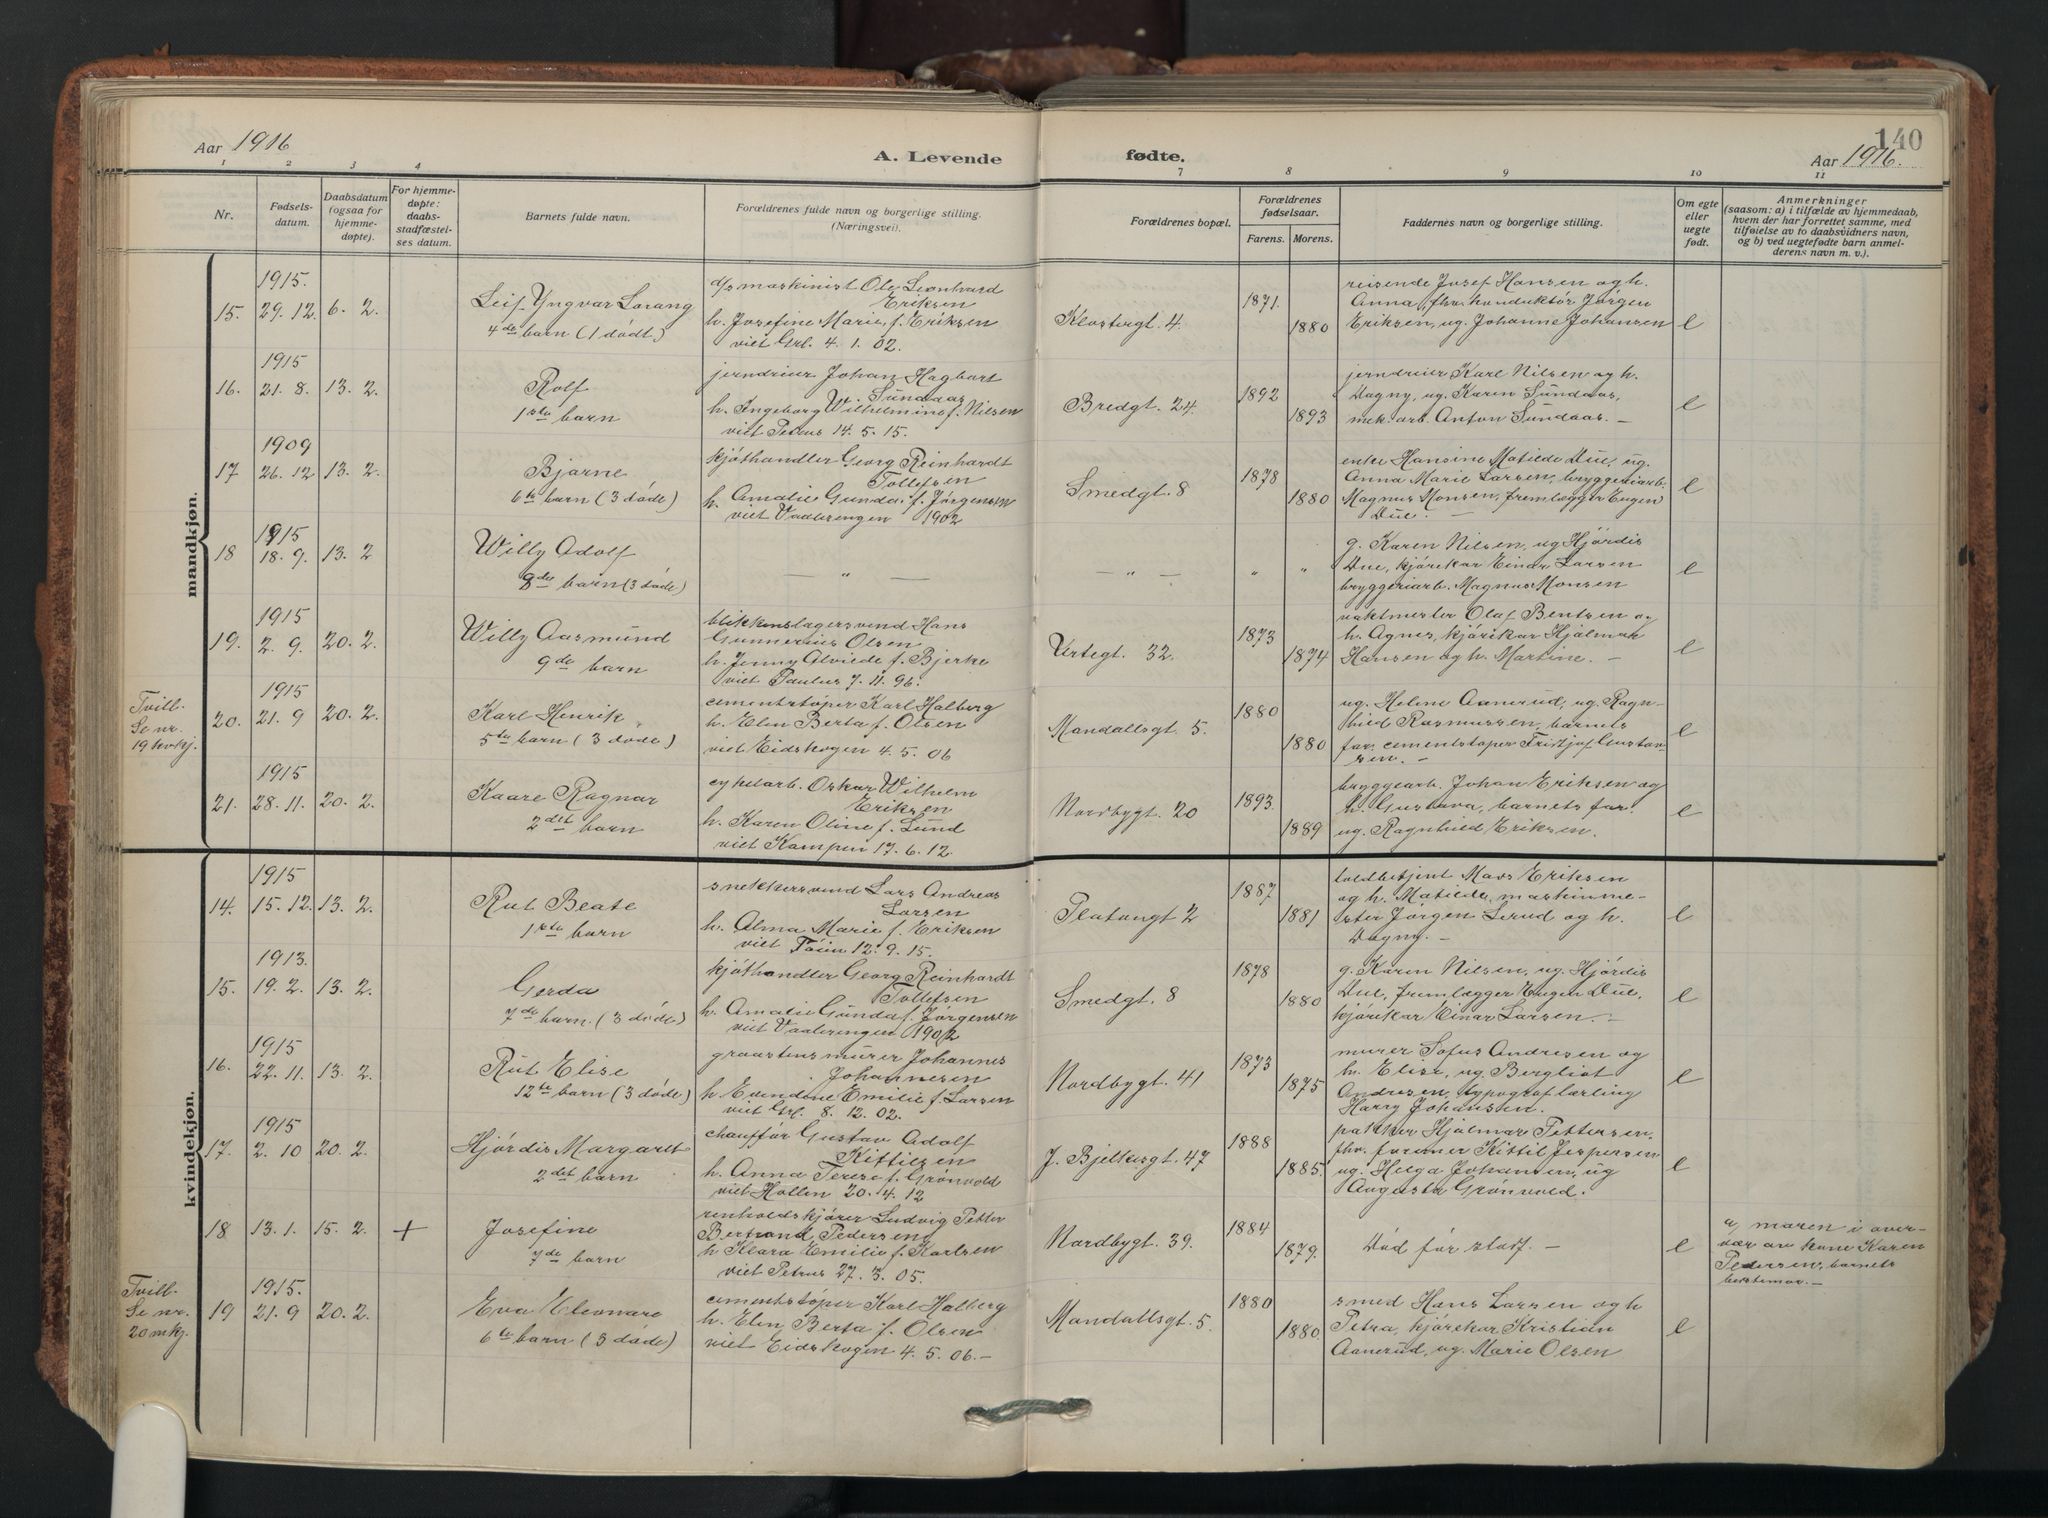 140
Aar 1916
A. Levende
fødte.
Aar 1916.
1 2 3 4 7 8 9 10 11
Nr.
Fødsels-
datum.
Daabsdatum
(ogsaa for
hjemme-
døpte).
For hjemme-
døpte:
daabs-
stadfæstel-
ses datum.
Barnets fulde navn.
Forældrenes fulde navn og borgerlige stilling.
(Næringsvei).
Forældrenes bopæl.
Forældrenes
fødselsaar.
Farens. Morens.
Faddernes navn og borgerlige stilling.
Om egte
eller
uegte
født.
Anmerkninger
(saasom: a) i tilfælde av hjemmedaab,
hvem der har forrettet samme, med
tilføielse av to daabsvidners navn,
og b) ved uegtefødte barn anmel-
derens navn m. v.).
mandkjøn.
15. 1915. 29. 12. 6. 2.
Leif Yngvar Lorang
4de barn (1 dødt)
d/s maskinist Ole Leonhard
Eriksen
h. Josefine Marie, f. Eriksen
viet Grl. 4. 1. 02.
Klostergt. 4.
1871.
1880
reisende Josef Hansen og h.
Anna, fhv. konduktør Jørgen
Eriksen, ug. Johanne Johansen
e
16. 1915 21. 8. 13. 2.
Rolf
1ste barn
jerndreier Johan Hagbart
Sundaas
h. Ingeborg Wilhelmine f. Nilsen
viet Petrus 14. 5. 15.
Bredgt. 24.
1892
1893
jerndreier Karl Nilsen og h.
Dagny, ug. Karen Sundaas,
mek. arb. Anton Sundaas. —
e
17 1909 26. 12 13. 2.
Bjarne
6te barn (3 døde)
kjøthandler Georg Reinhardt
Tollefsen
h. Amalie Gunda f. Jørgensen
viet Vaalerengen 1902
Smedgt. 8
1878
1880
enke Hansine Matilde Due, ug.
Anna Marie Larsen, bryggeriarb.
Magnus Monsen, fremlægger Eugen
Due. —
e
18 1915 18. 9. 13. 2
Willy Adolf
8de barn (3 døde)
— " —
— " —
" "
g. Karen Nilsen, ug Hjørdis
Due, kjørekar Einar Larsen
bryggeriarb. Magnus Monsen
e
19. 1915 2. 9. 20. 2.
Willy Aasmund
9de barn
blikkenslagersvend Hans
Gunnerius Olsen
h. Jenny Alviede f. Bjerke
viet Paulus 7. 11. 96.
Urtegt. 32.
1873
1874
vaktmester Olaf Bentsen og
h. Agnes, kjørekar Hjalmar
Hansen og h. Martine. —
e
Tvill.
Se nr.
19 kvkj.
20. 1915 21. 9 20. 2.
Karl Henrik
5te barn (3 døde)
cementstøper Karl Halberg
h. Elen Berta f. Olsen
viet Eidskogen 4. 5. 06
Mandallsgt. 5.
1880
1880
ug. Helene Aanerud, ug. Ragn-
hild Rasmussen, barnets
far, cementstøper Fritjof Gustav-
sen. —
e
21. 1915 28. 11. 20. 2.
Kaare Ragnar
2det barn
cykelarb. Oskar Wilhelm
Eriksen
h. Karen Oline f. Lund
viet Kampen 17. 6. 12.
Nordbygt. 20
1893.
1889
bryggearb. Johan Eriksen og
h. Gustava, barnets far.
ug. Ragnhild Eriksen.
e
kvindekjøn.
14. 1915 15. 12. 13. 2.
Rut Beate
1ste barn
snekkersvend Lars Andreas
Larsen
h. Alma Marie f. Eriksen
viet Tøien 12. 9. 15.
Platougt 2
1887
1881
toldbetjent Mavs Eriksen
og h. Matilde, maskinme-
ster Jørgen Lerud og h.
Dagny. —
e
15. 1913. 19. 2. 13. 2.
Gerda
7de barn. (3 døde)
kjøthandler Georg Reinhardt
Tollefsen
h. Amalie Gunda f. Jørgensen
viet Vaalerengen 1902
Smedgt. 8
1878
1880
g. Karen Nilsen, ug. Hjørdis
Due, fremlægger Eugen Due,
kjørekar Einar Larsen. —
e
16. 1915 22. 11. 13. 2.
Rut Elise
12te barn (3 døde)
graastensmurer Johannes
Johannesen
h. Edendine Emilie f. Larsen
viet Grl. 8. 12. 02.
Nordbygt. 41
1873
1875
murer Sofus Andresen og
h. Elise, ug. Bergliot
Andresen, typograflærling
Harry Johansen.
e
17. 1915 2. 10 20. 2.
Hjørdis Margaret
2det barn
chauffør Gustav Adolf
Kittilsen
h. Anna Terese f. Grønvold
viet Hollen 20. 4. 12
J. Bjelkesgt. 47
1888
1885.
pakker Hjalmar Pettersen,
fhv. farmer Kittil Jespersen
ug. Helga Johansen, ug
Augusta Grønvold.
e
18 13. 1. 15. 2. +
Josefine
7de barn
renholdskjører Ludvig Petter
Bertrand Pedersen
h. Klara Emilie f. Karlsen
viet Petrus 27. 3. 05.
Nordbygt. 39.
1884
1879.
Død før stadf. —
e
a, moren i over-
vær av kone Karen
Pedersen, barnets
bestemor. —
Tvill.
Se nr.
20 mkj.
19 1915. 21. 9 20. 2.
Eva Eleonore
6te barn (3 døde)
cementstøper Karl Halberg
h. Elen Berta f. Olsen
viet Eidskogen 4. 5. 06. —
Mandallsgt. 5.
1880
1880.
smed Hans Larsen og h
Petra, kjørekar Kristian
Aanerud, ug. Marie Olsen
e